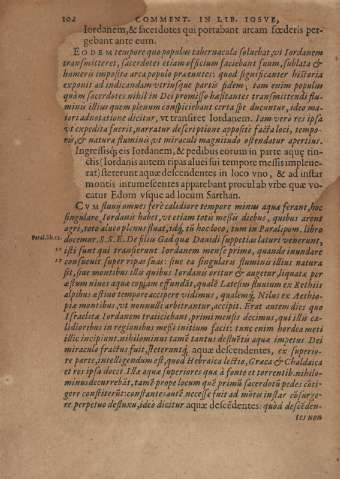 102 COMMENT. IN LIB. IOSVE,
Iordanem, & sacerdotes qui portabant arcam fœderis per-
gebant ante eum.
EODEM tempore quo populus tabernacula soluebat, vt Iordanem
transmitteret, sacerdotes etiam officium faciebant suum, sublata &
humeris imposita arca populo præeuntes: quod significanter historia
exponit ad indicandam vtriusque partis fidem, tam enim populus
quàm sacerdotes nihil in Dei promisso hæsitantes transmittendi flu-
minis illius quem plenum conspiciebant certa spe ducuntur, ideo ma-
iori adnotatione dicitur, vt transiret Iordanem. Iam verò res ipsa
vt expedita fuerit, narratur descriptione apposita facti loci, tempo-
ris, & natura fluminis, vt miraculi magnitudo ostendatur apertius.
Ingressisq́; eis Iordanem, & pedibus eorum in parte aquæ tin-
ctis (Iordanis autem ripas aluei sui tempore messis impleue-
rat) steterunt aquæ descendentes in loco vno, & ad instar
montis intumescentes apparebant procul ab vrbe quæ vo-
catur Edom vsque ad locum Sarthan.
CVM fluuij omnes ferè caliodiore tempore minus aquæ ferant, hoc
singulare Iordanis habet, vt etiam totis messis diebus, quibus arent
agri, toto alueo plenus fluat, idq́; tū hoc loco, tum in Paralipom. libro
Paral. lib. 12. docemur. S. S. E. De filijs Gad quæ Dauidi suppetias laturi venerunt,
" isti sunt qui transierunt Iordanem mense primo, quando inundare
" consueuit super ripas suas: siue ea singularis fluminis illius natura
sit, siue montibus illis quibus Iordanis oritur & augetur, liquata per
æstum niues aquæ copiam effundāt, qualē Latesim fluuium ex Rethiis
alpibus æstiuo tempore accipere vidimus, qualemq́; Nilus ex Aethio-
piæ montibus, vt nonnulli arbitrantur, accipit. Erat autem dies quo
Israelitæ Iordanem traiiciebant, primi mensis decimus, qui illis ca-
lidioribus in regionibus messis initium facit: tunc enim hordea meti
illic incipiunt. nihilominus tamē tantus defluxus aquæ impetus Dei
miraculo fractus fuit, steteruntq́; aquæ descendentes, ex superio-
re parte, intelligendum est, quod Hebraica lectio, Græca & Chaldaica
et res ipsa docet. Illæ aquæ superiores quæ à fonte et torrentib. nihilo-
minus decurrebāt, tamē prope locum quē primū sacerdotū pedes cōti-
gere constiterūt: constantes autē necesse fuit ad mōtis instar cōsurge-
re perpetuo defluxu, ideo dicitur aquæ descēdentes: quod descēden-
tes non